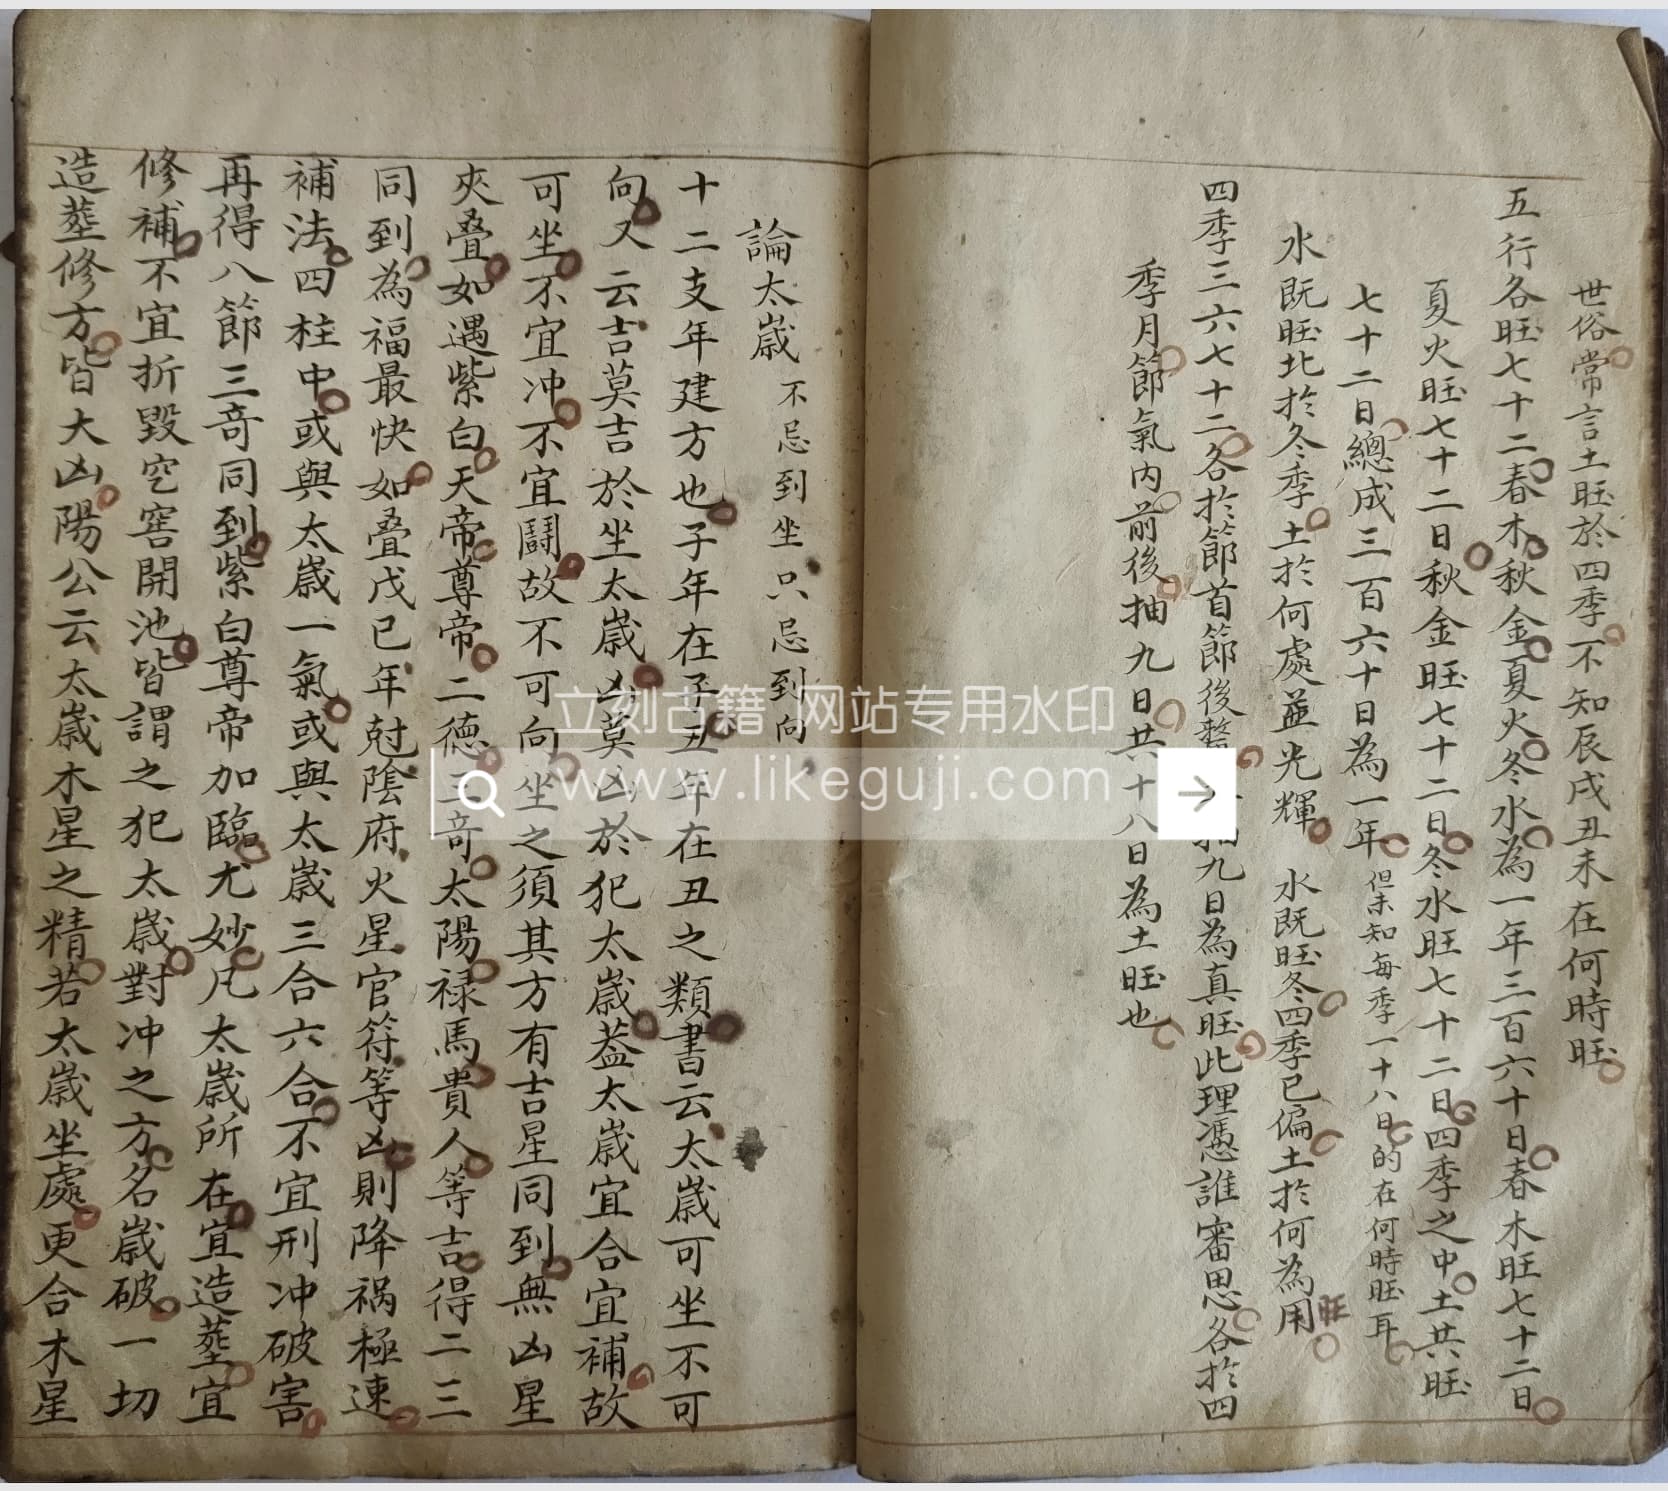 世俗常言土旺於四季不知辰戌丑未在何時旺
五行各旺七十二春木秋金夏火冬水為一年三百六十日春木旺七十二日
夏火旺七十二日秋金旺七十二日冬水旺七十二日四季之中土共旺
七十二日總成三百六十日為一年但未知每季一十八日的在何時旺耳
水既旺北於冬季土於何處並光輝 水既旺冬四季已偏土於何為用旺
四季三六七十二各於節首節後 九日為真旺此理憑誰審思各於四
季月節氣內前後抽九日共十八日為土旺也
論太歲 不忌到坐只忌到向
十二支年建方也子年在子丑年在丑之類書云太歲可坐不可
向又云吉莫吉於坐太歲凶莫凶於犯太歲蓋太歲宜合宜補故
可坐不宜冲不宜鬪故不可向坐之須其方有吉星同到無凶星
夾叠如遇紫白天帝尊帝二德三奇太陽祿馬貴人等吉得二三
同到為福最快如叠戊己年尅陰府火星官符等凶則降禍極速
補法四柱中或與太歲一氣或與太歲三合六合不宜刑冲破害
再得八節三奇同到紫白尊帝加臨尤妙凡太歲所在宜造塟宜
修補不宜折毀空窖開池皆謂之犯太歲對冲之方名歲破一切
造塟修方皆大凶陽公云太歲木星之精若太歲坐處更合木星
立刻古籍 网站专用水印
www.likeguji.com